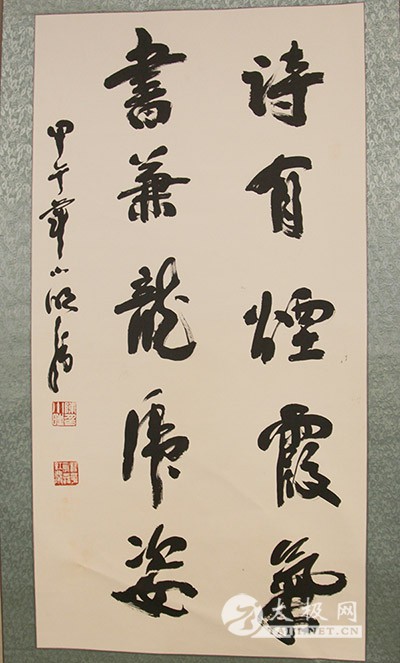 詩有煙霞氣
書兼龍虎姿
甲午
太极网
TAIJI.NET.CN